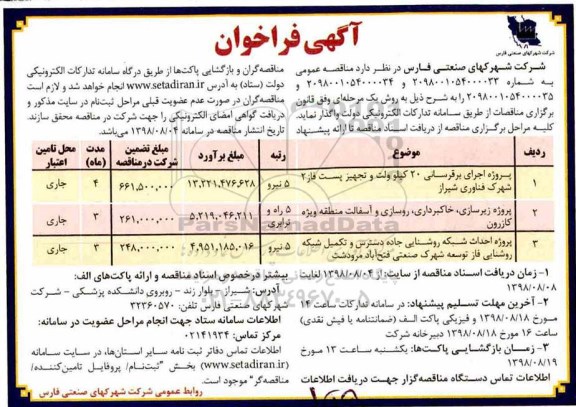 آگهی فراخوان
شرکت شهرکهای صنعتی فارس
شرکت شهرکهای صنعتی فارس در نظر دارد مناقصه عمومی
به شماره ۲۰۹۸۰۰۱۰۵۴۰۰۰۰۳۳ و ۲۰۹۸۰۰۱۰۵۴۰۰۰۰۳۴ و
۲۰۹۸۰۰۱۰۵۴۰۰۰۰۳۵ را به شرح ذیل به روش یک مرحله‌ای وفق قانون
برگزاری مناقصات از طریق سامانه تدارکات الکترونیکی دولت واگذار نماید.
کلیه مراحل برگزاری مناقصه از دریافت اسناد مناقصه تا ارائه پیشنهاد
مناقصه‌گران و بازگشایی پاکت‌ها از طریق درگاه سامانه تدارکات الکترونیکی
دولت (ستاد) به آدرس www.setadiran.ir انجام خواهد شد و لازم است
مناقصه‌گران در صورت عدم عضویت قبلی مراحل ثبت‌نام در سایت مذکور و
دریافت گواهی امضای الکترونیکی را جهت شرکت در مناقصه محقق سازند.
تاریخ انتشار مناقصه در سامانه ۱۳۹۸/۰۸/۰۴ می‌باشد.
ردیف موضوع رتبه مبلغ برآورد مبلغ تضمین شرکت در مناقصه مدت (ماه) محل تامین اعتبار
۱ پروژه اجرای برقرسانی ۲۰ کیلوولت و تجهیز پست فاز۲ شهرک فناوری شیراز ۵ نیرو ۱۳,۲۲۱,۴۷۶,۶۲۸ ۶۶۱,۵۰۰,۰۰۰ ۴ جاری
۲ پروژه زیرسازی، خاکبرداری، روسازی و آسفالت منطقه ویژه کازرون ۵ راه و ترابری ۵,۲۱۹,۰۴۶,۲۱۱ ۲۶۱,۰۰۰,۰۰۰ ۳ جاری
۳ پروژه احداث شبکه روشنایی جاده دسترس و تکمیل شبکه روشنایی فاز توسعه شهرک صنعتی فتح‌آباد مرودشت ۵ نیرو ۴,۹۵۱,۱۸۵,۰۱۶ ۲۴۸,۰۰۰,۰۰۰ ۳ جاری
ParsNamadData
۱- زمان دریافت اسناد مناقصه از سایت: از ۱۳۹۸/۰۸/۰۴ لغایت
۱۳۹۸/۰۸/۰۸
۲- آخرین مهلت تسلیم پیشنهاد: در سامانه تدارکات ساعت ۱۴
مورخ ۱۳۹۸/۰۸/۱۸ و فیزیکی پاکت الف (ضمانتنامه یا فیش نقدی)
ساعت ۱۶ مورخ ۱۳۹۸/۰۸/۱۸ دبیرخانه شرکت
۳- زمان بازگشایی پاکت‌ها: یکشنبه ساعت ۱۳ مورخ
۱۳۹۸/۰۸/۱۹
اطلاعات تماس دستگاه مناقصه‌گزار جهت دریافت اطلاعات
بیشتر درخصوص اسناد مناقصه و ارائه پاکت‌های الف:
آدرس: شیراز - بلوار زند - روبروی دانشکده پزشکی - شرکت
شهرکهای صنعتی فارس تلفن: ۳۲۳۶۰۵۷۰
اطلاعات سامانه ستاد جهت انجام مراحل عضویت در سامانه:
مرکز تماس: ۰۲۱۴۱۹۳۴
اطلاعات تماس دفاتر ثبت نام سایر استان‌ها، در سایت سامانه
(www.setadiran.ir) بخش "ثبت‌نام/ پروفایل تامین‌کننده/
مناقصه‌گر" موجود است.
روابط عمومی شرکت شهرکهای صنعتی فارس